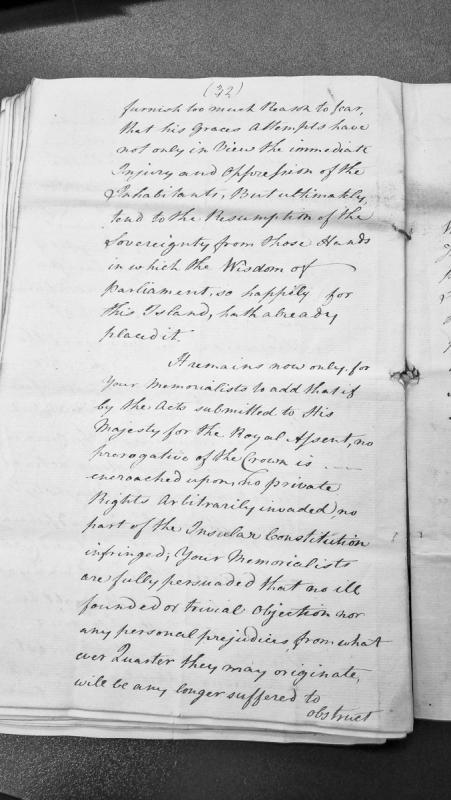 (32)
furnish too much Reason to fear,
that his Graces Attempts have
not only in View the immediate
Injury and Oppression of the
Inhabitants, But ultimately,
tend to the Resumption of the
Sovereignty from those Hands
in which the Wisdom of
Parliament, so happily for
this Island, hath already
placed it.
It remains now only, for
Your Memorialists to add that if
by the Acts submitted to His
Majesty for the Royal Assent, no
prerogative of the Crown is
encroached upon, no private
Rights Arbitrarily invaded, no
part of the Insular Constitution
infringed; Your Memorialists
are fully persuaded that no ill
founded or trivial Objection nor
any personal prejudices, from what
ever Quarter they may originate,
will be any longer suffered to
obstruct